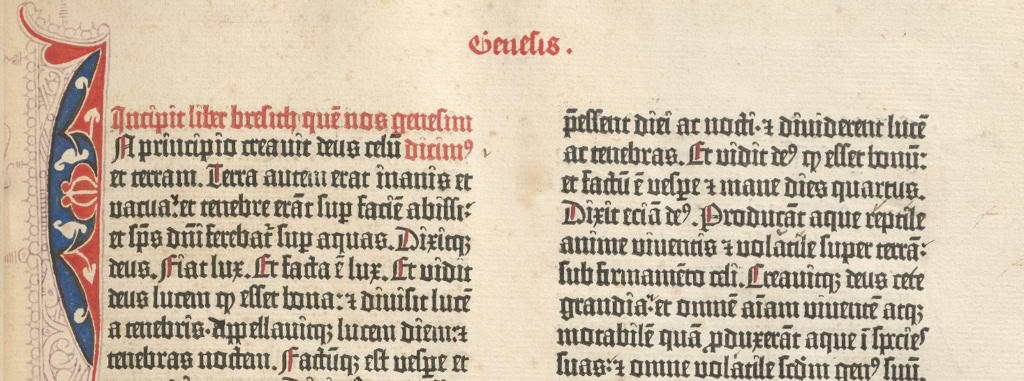 Genesis.
Incipit liber bresich quē nos genesim
A principio creauit deus celū dicimꝰ
et terram. Terra autem erat inanis et
vacua: et tenebre erāt sup faciē abissi:
et sp̄s dn̄i ferebat᷑ sup aquas. Dixitqꝫ
deus. Fiat lux. Et facta ē lux. Et vidit
deus lucem ꝙ esset bona: ⁊ diuisit lucē
a tenebris. Appellauitqꝫ lucem diem: ⁊
tenebras noctem. Factūqꝫ est vespe et
p̄essent diei ac nocti. ⁊ diuiderent lucē
ac tenebras. Et vidit deꝰ ꝙ esset bonū:
et factū ē vespe ⁊ mane dies quartus.
Dixit eciā deꝰ. Producāt aque reptile
anime viuentis ⁊ volatile super terrā:
sub firmamēto celi. Creauitqꝫ deus cete
grandia: et omnē aīam viuentē atqꝫ
motabilē quā ꝓduxerāt aque ī species
suas: ⁊ omne volatile scd̄m genꝰ suū.